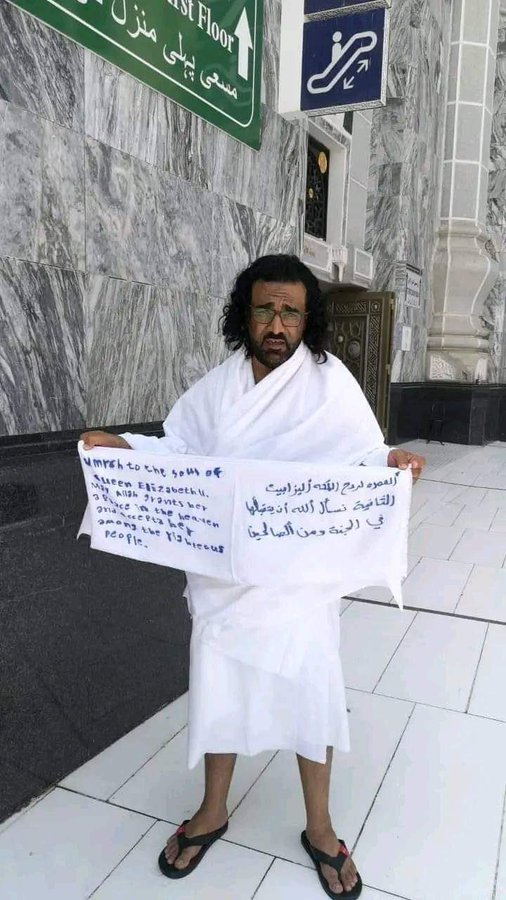 First Floor
مسعى پہلی منزل
Umrah to the soul of
Queen Elizabeth II,
May Allah grants her
a place in the heaven
and accepts her
among the righteous
people.
العمره لروح الملكه أليزابيث
الثانية نسأل الله أن يتقبلها
في الجنة ومن الصالحين